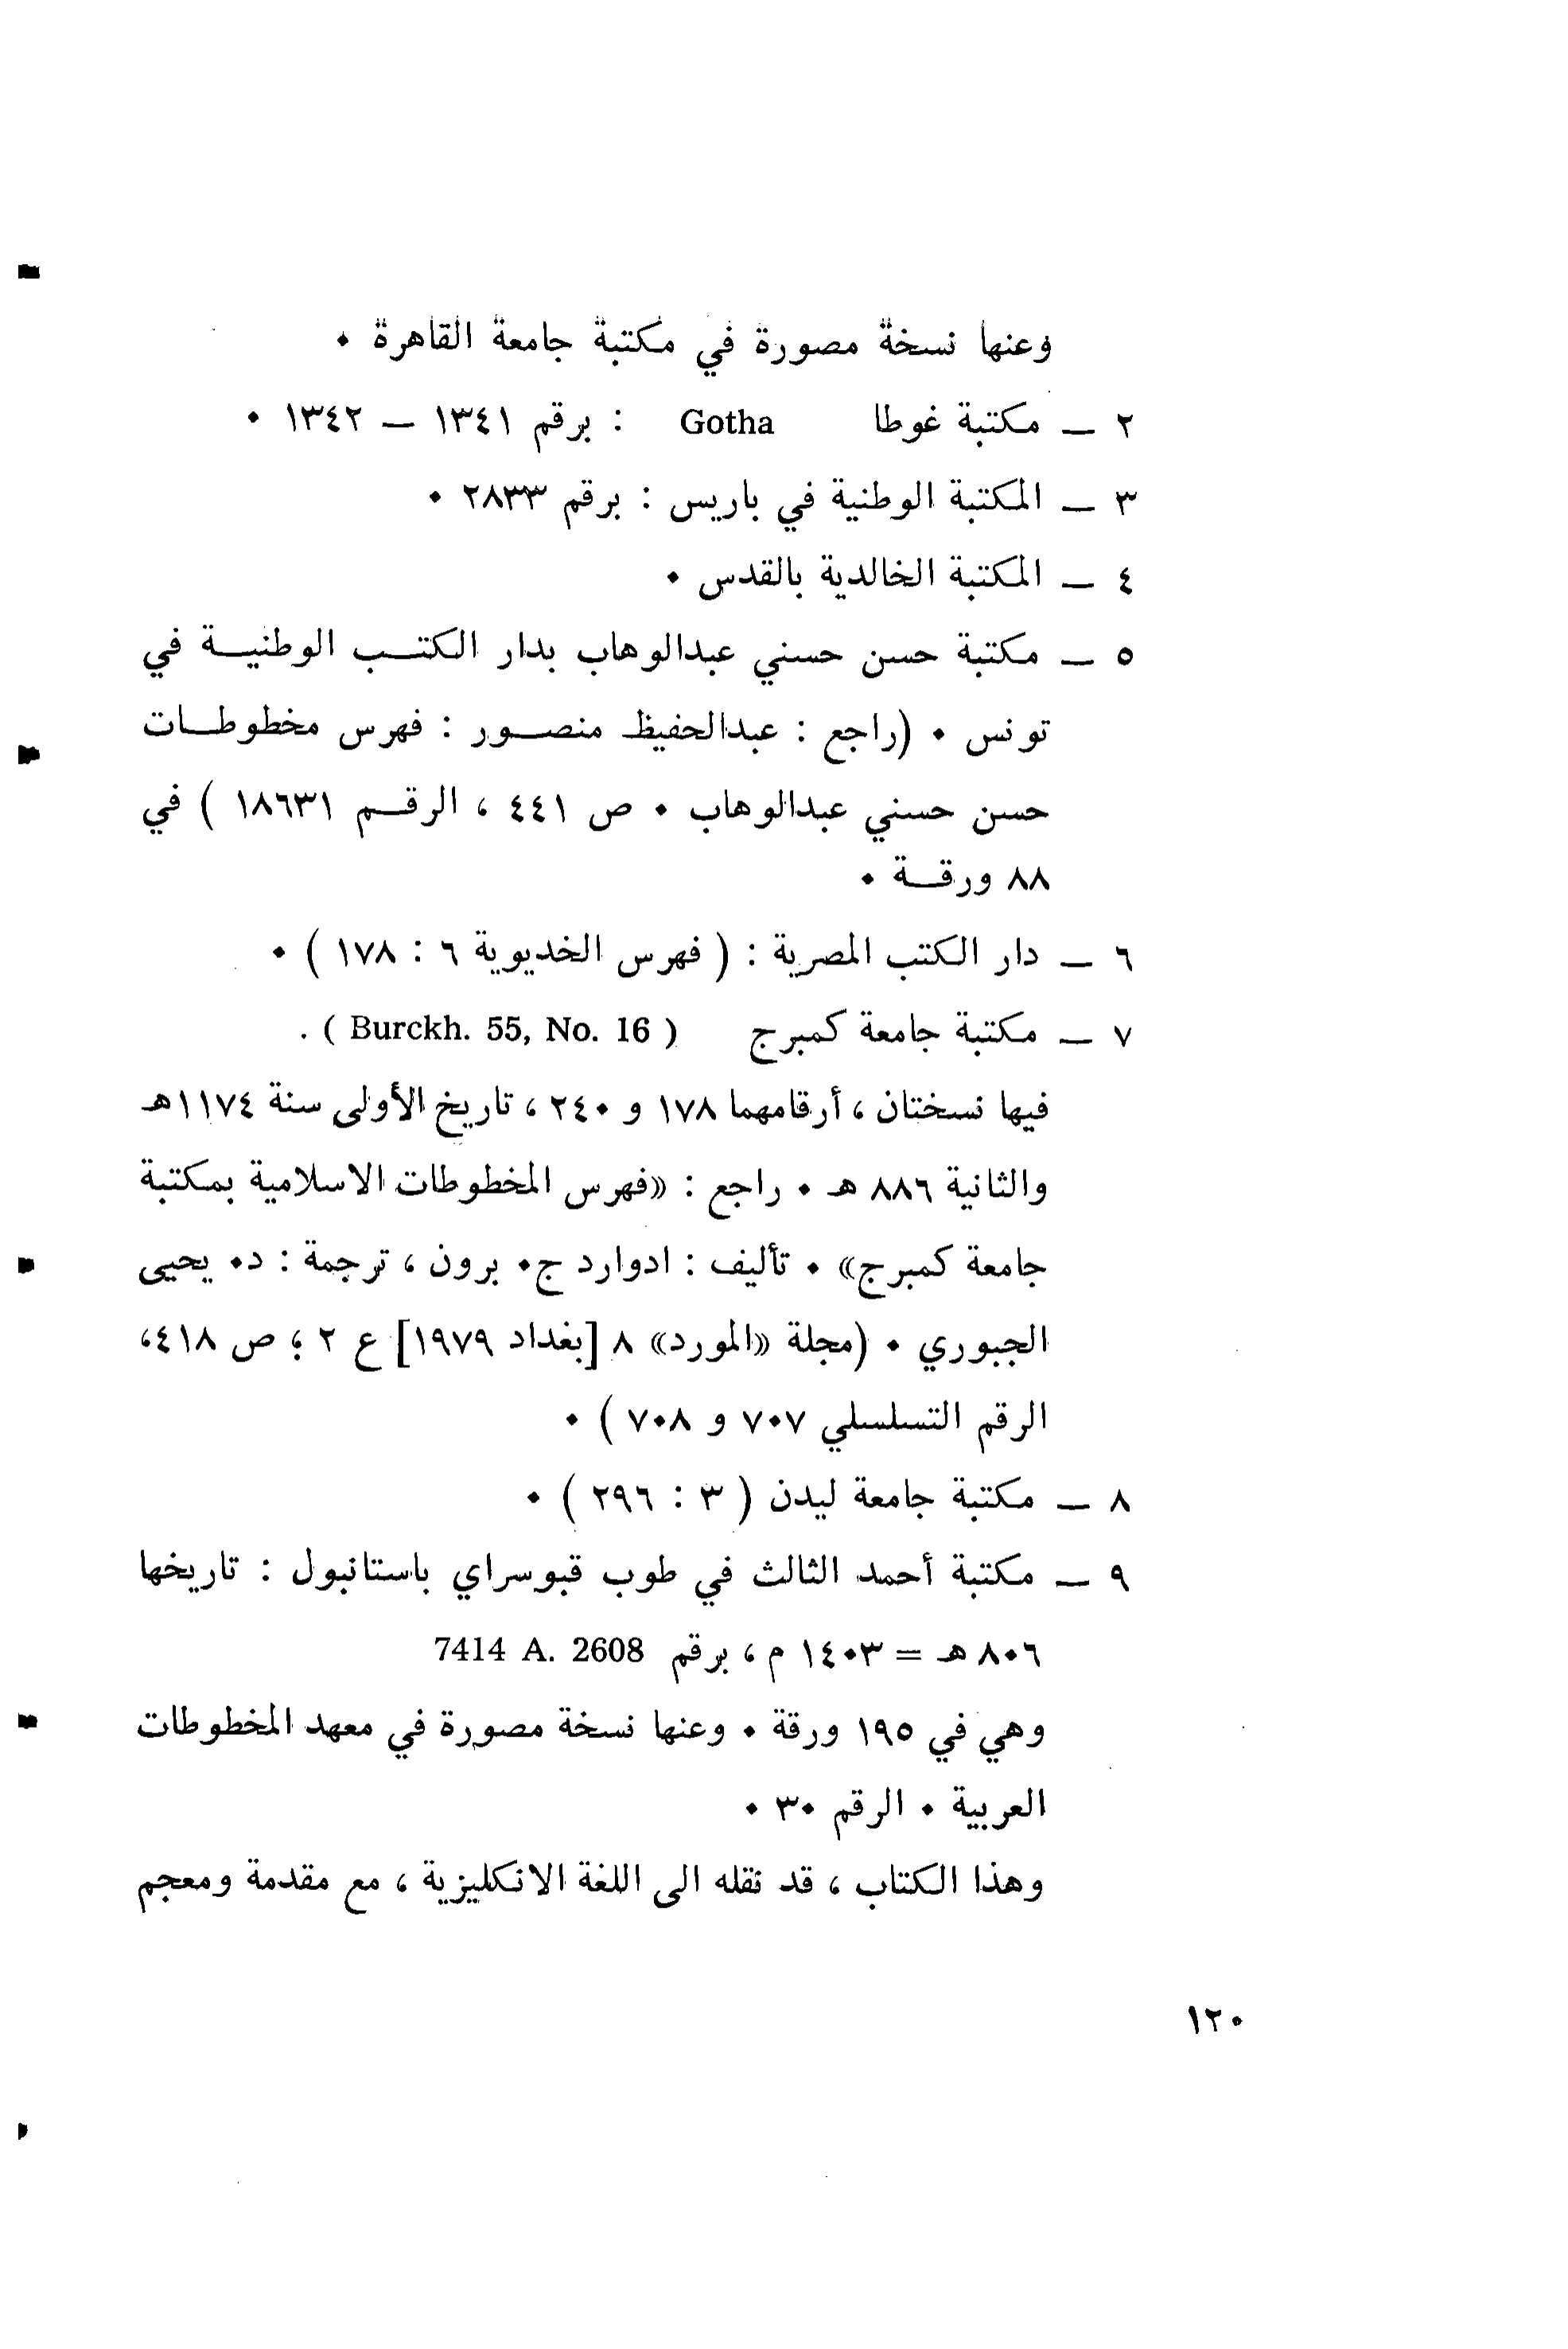 وعنها نسخة مصورة في مكتبة جامعة القاهرة ٠
٢ ــ مكتبة غوطا Gotha : برقم ١٣٤١ ــ ١٣٤٢ ٠
٣ ــ المكتبة الوطنية في باريس : برقم ٢٨٣٣ ٠
٤ ــ المكتبة الخالدية بالقدس ٠
٥ ــ مكتبة حسن حسني عبدالوهاب بدار الكتـب الوطنيـة في
تونس ٠ (راجع : عبدالحفيظ منصـور : فهرس مخطوطـات
حسن حسني عبدالوهاب ٠ ص ٤٤١ ، الرقـم ١٨٦٣١ ) في
٨٨ ورقـة ٠
٦ ــ دار الكتب المصرية : ( فهرس الخديوية ٦ : ١٧٨ ) ٠
٧ ــ مكتبة جامعة كمبرج ( Burckh. 55, No. 16 ) .
فيها نسختان ، أرقامهما ١٧٨ و ٢٤٠ ، تاريخ الأولى سنة ١١٧٤هـ
والثانية ٨٨٦ هـ ٠ راجع : «فهرس المخطوطات الاسلامية بمكتبة
جامعة كمبرج» ٠ تأليف : ادوارد ج٠ برون ، ترجمة : د٠ يحيى
الجبوري ٠ (مجلة «المورد» ٨ [بغداد ١٩٧٩] ع ٢ ؛ ص ٤١٨،
الرقم التسلسلي ٧٠٧ و ٧٠٨ ) ٠
٨ ــ مكتبة جامعة ليدن ( ٣ : ٢٩٦ ) ٠
٩ ــ مكتبة أحمد الثالث في طوب قبوسراي باستانبول : تاريخها
٨٠٦ هـ = ١٤٠٣ م ، برقم 7414 A. 2608
وهي في ١٩٥ ورقة ٠ وعنها نسخة مصورة في معهد المخطوطات
العربية ٠ الرقم ٣٠ ٠
وهذا الكتاب ، قد نقله الى اللغة الانكليزية ، مع مقدمة ومعجم
١٢٠